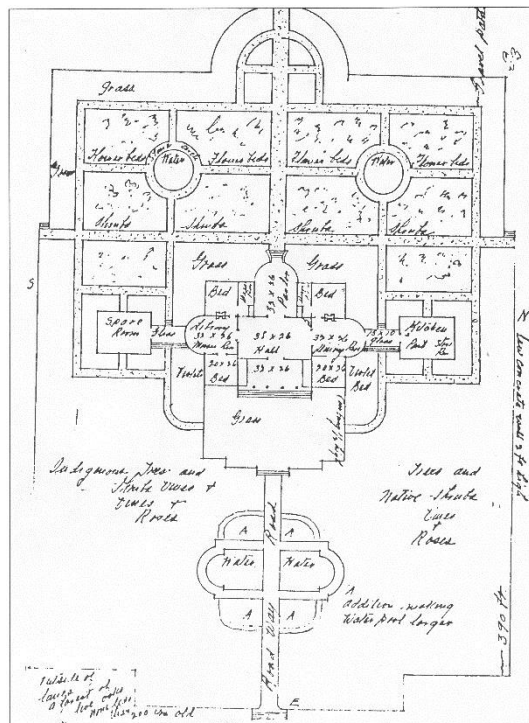 Gravel path
Grass
Flower beds
Water
Flower beds
Flower beds
Water
Flower beds
Shrubs
Shrubs
Shrubs
Shrubs
S
Grass
Grass
Bed
Parlor
33 x 36
Bed
N
Spare
Room
Glass
Library
33 x 36
Music Rm
35 x 36
Hall
33 x 36
Dining Room
15 x 10
Glass
Kitchen
Violet
Bed
20 x 36
Bed
33 x 36
20 x 36
Bed
Violet
Bed
Grass
Indigenous Trees and
Shrubs Vines &
Roses
Trees and
Native Shrubs
Vines
&
Roses
A
Road
A
Water
Water
A
A
A
addition making
Water pool longer
Road Way
390 ft.
E